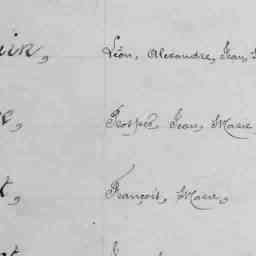 uin, Léon, Alexandre, Jean,
e, Prosper, Jean, Marie
t, François, Marie,